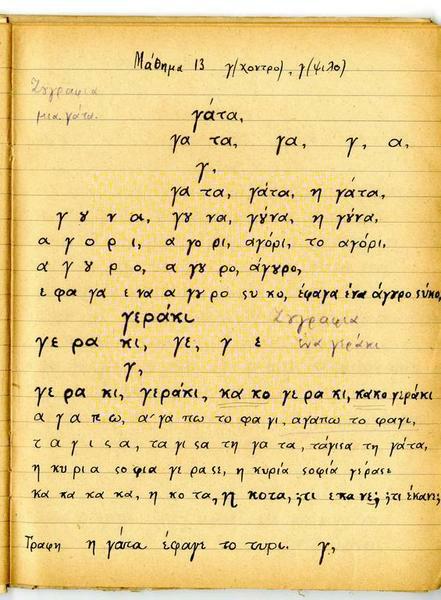 Μάθημα 13 γ(χοντρο), γ(ψιλο)
Ζωγραφια
μια γάτα.
γάτα,
γα τα, γα, γ, α,
γ,
γα τα, γάτα, η γάτα,
γ ο υ ν α, γου να, γούνα, η γούνα,
α γ ο ρ ι, α γο ρι, αγόρι, το αγόρι,
α γ ο υ ρ ο, α γου ρο, άγουρο,
ε φα γα ε να α γου ρο συ κο, έφαγα ένα άγουρο σύκο,
γεράκι Ζωγραφια
γε ρα κι, γε, γ ε ένα γεράκι
γ,
γε ρα κι, γεράκι, κα κο γε ρα κι, κακο γεράκι
α γ α π ω, α γα πω το φα γι, αγαπω το φαγι,
τ α γ ι σ α, τα γι σα τη γα τα, τάγισα τη γάτα,
η κυ ρι α σο φια γε ρα σε, η κυρία σοφία γέρασε
κα κα κα κα, η κο τα, η κοτα, τι εκα νε; τι έκανε;
Γραφη η γάτα έφαγε το τυρι. γ,